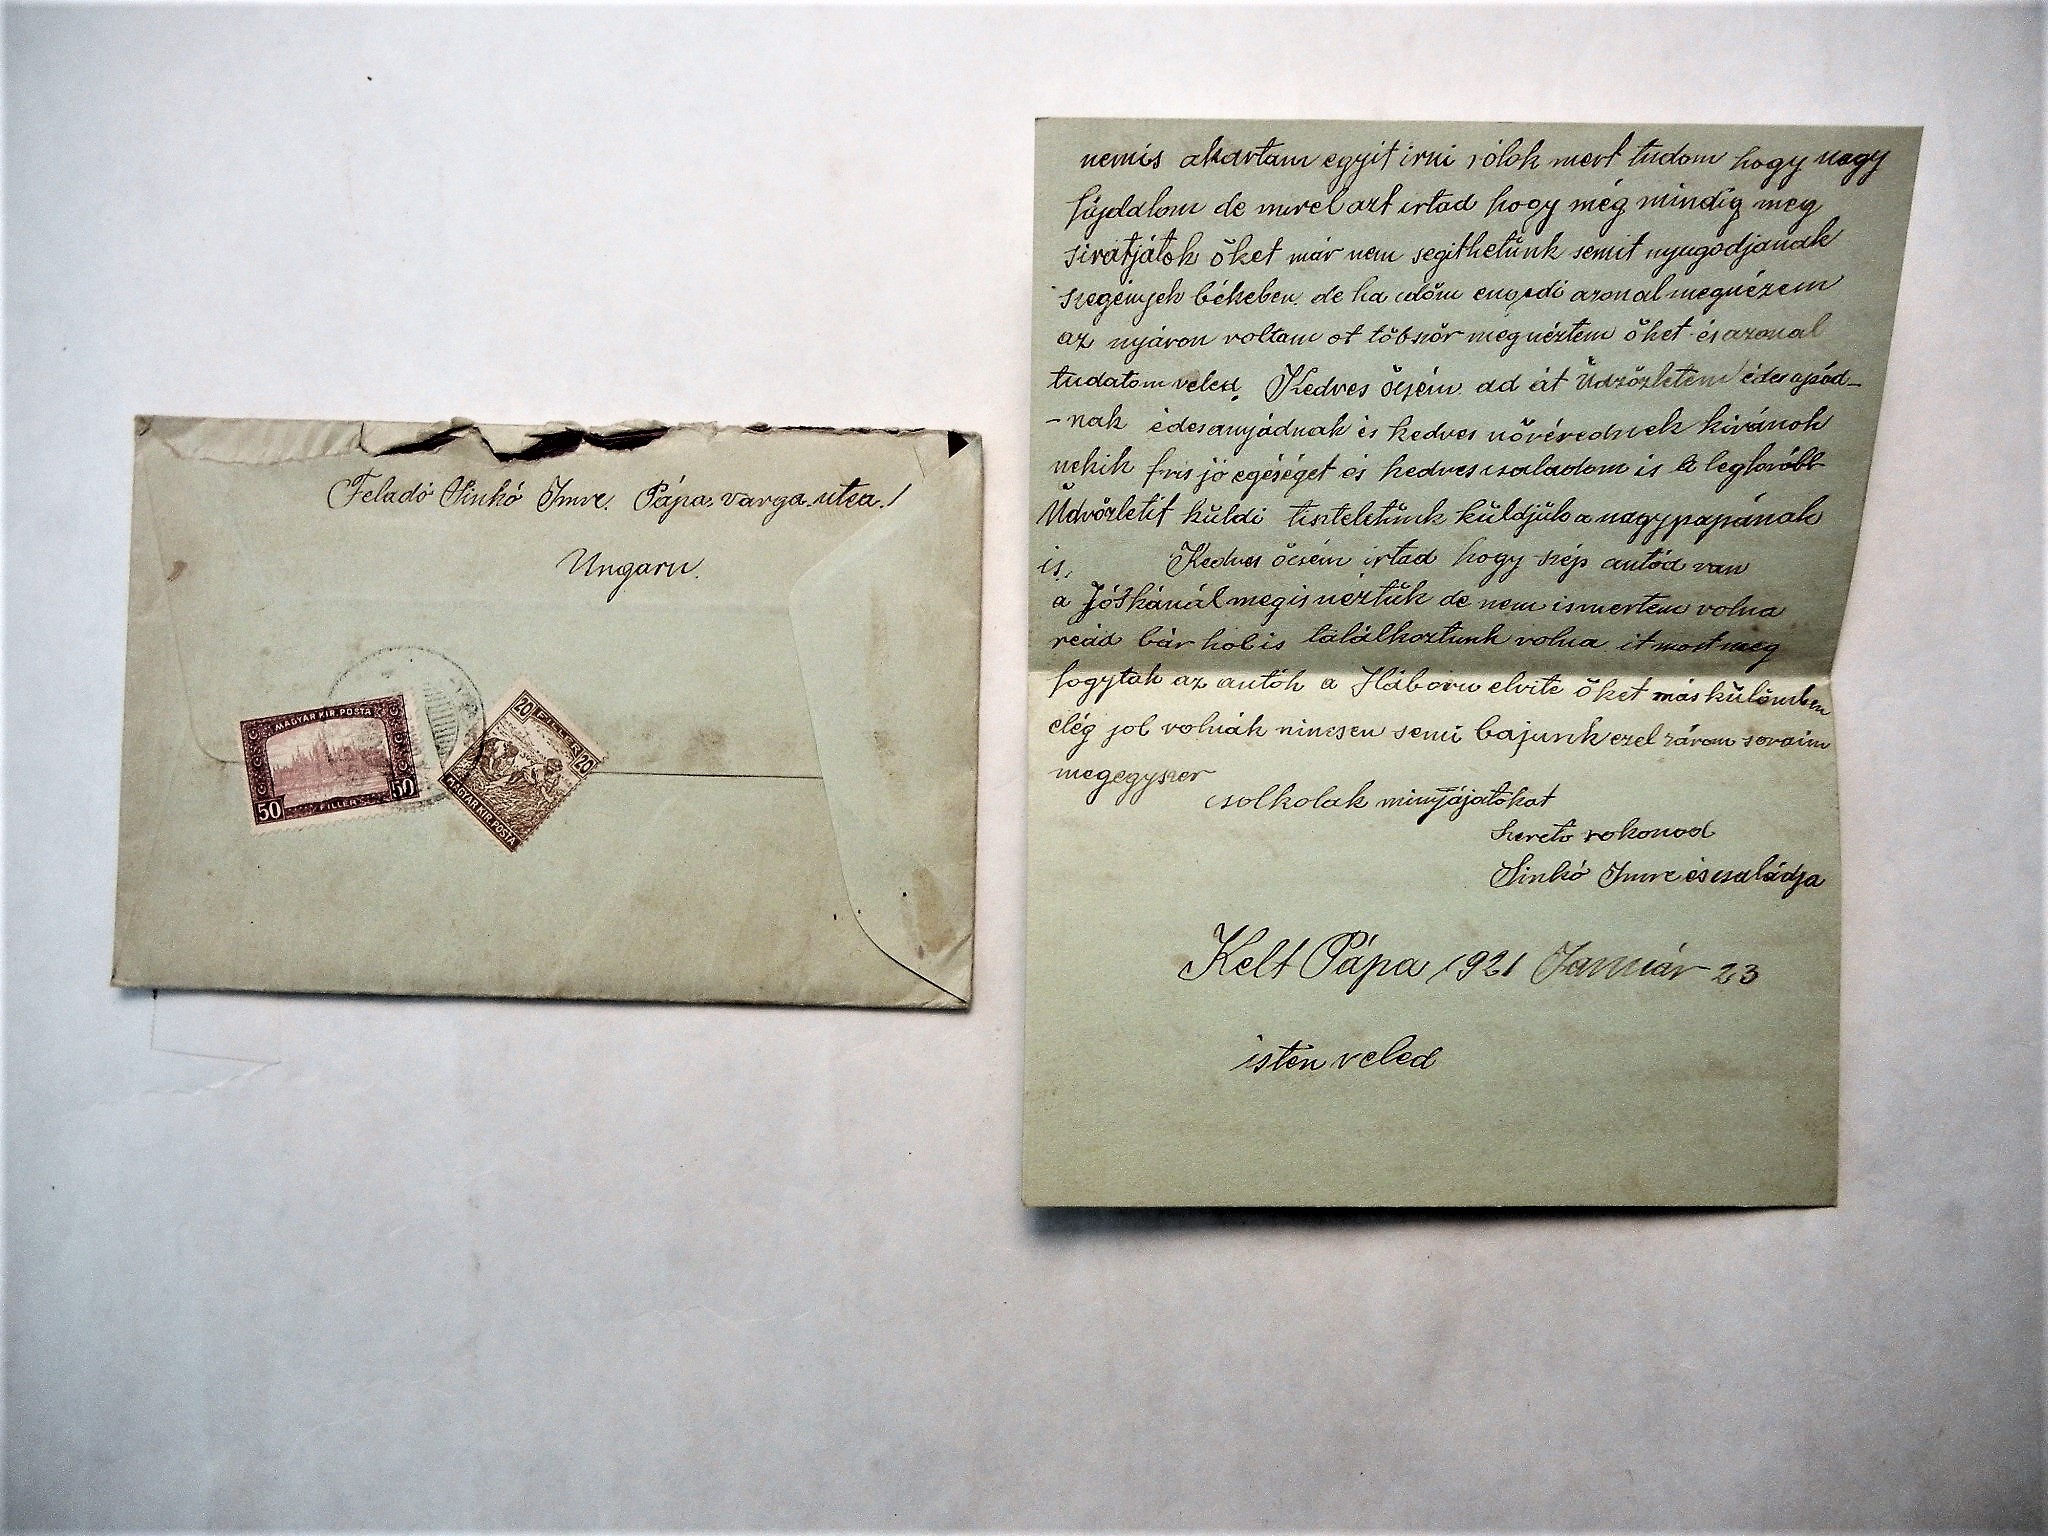 Feladó Sinkó Imre. Pápa, varga utca. 1
Ungarn.
MAGYAR KIR. POSTA
50 FILLÉR 50
20 FILLÉR 20
MAGYAR KIR. POSTA
nemis akartam egyit irni rólok mert tudom hogy nagy
fájdalom de mivel azt irtad hogy még mindig meg
siratjátok őket már nem segithetünk semit nyugodjanak
szegények békeben. de ha időm engedi azonal megnézem
az nyáron voltam ot töbször megnéztem őket és azonal
tudatom veled. Kedves öcsém ad át Üdvözletem édes apád-
-nak édesanyádnak és kedves nővérednek kivánok
nekik fris jó egéséget és kedves csaladom is a legforóbb
Üdvözletit küldi tiszteletünk küldjük a nagypapának
is. Kedves öcsém irtad hogy szép autód van
a Jóskánál megis néztük de nem ismertem volna
reád bár hol is találkoztunk volna it most meg
fogytak az autók a Háboru elvite őket más külömben
elég jol volnák nincsen semi bajunk ezel zárom soraim
megegyszer
csolkolak minyájatokat
Szerető rokonod
Sinkó Imre és családja
Kelt Pápa 1921 Január 23
isten veled